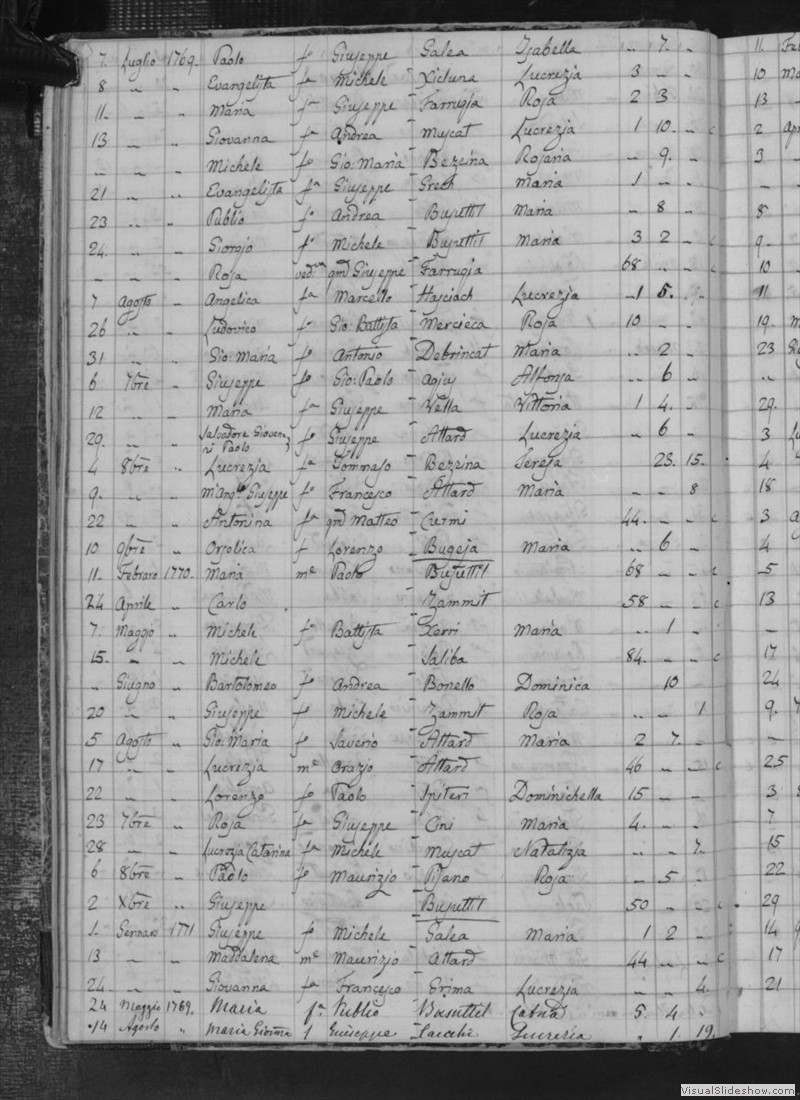 7 Luglio 1769. Paolo fo Giuseppe Galea Isabella .. 7. ..
8 „ „ Evangelista fa Michele Xicluna Lucrezia 3 .. ..
11. „ „ Maria fa Giuseppe Farrugia Rosa 2 3 ..
13 „ „ Giovanna fa Andrea Muscat Lucrezia 1 10. .. c
„ „ „ Michele fo Gio: Maria Bezzina Rosaria .. 9. ..
21 „ „ Evangelista fa Giuseppe Grech Maria 1 .. ..
23 „ „ Publio fo Andrea Busuttil Maria .. 8 ..
24. „ „ Giorgio fo Michele Busuttil Maria 3 2 .. c
„ „ „ Rosa qmd Giuseppe Farrugia 68 .. .. c
7 Agosto „ Angelica fa Marcello Lucrezia 1 5.
26 „ „ Ludovico fo Gio: Battista Mercieca Rosa 10 .. ..
31 „ „ Gio: Maria fo Antonio Debrincat Maria .. 2 ..
6 7bre „ Giuseppe fo Gio: Paolo Alfonsa .. 6 ..
12 „ „ Maria fa Giuseppe Vella Vittoria 1 4. ..
29. „ „ Salvadore Giovanni Paolo fo Giuseppe Attard Lucrezia .. 6 ..
4 8bre „ Lucrezia fa Tommaso Bezzina Teresa 23. 15.
9. „ „ Giuseppe fo Francesco Attard Maria .. .. 8
22 „ „ Antonina fa qmd Matteo Curmi 44. .. .. c
10 9bre „ Orsolica f Lorenzo Bugeja Maria .. 6 ..
11. Febraro 1770. Maria me Paolo Busuttil 68 .. .. c
24 Aprile „ Carlo Zammit 58 .. .. c
7. Maggio „ Michele fo Battista Xerri Maria .. 1 ..
15. „ „ Michele Saliba 84. .. .. c
„ Giugno „ Bartolomeo fo Andrea Bonello Dominica 10 ..
20 „ „ Giuseppe fo Michele Zammit Rosa .. .. 1
5 Agosto „ Gio: Maria fo Saverio Attard Maria 2 7. ..
17 „ „ Lucrezia me Orazio Attard 46 .. .. c
22 „ „ Lorenzo fo Paolo Spiteri Dominichella 15 .. ..
23 7bre „ Rosa fa Giuseppe Cini Maria 4. .. ..
28 „ „ Lucrezia Catarina fa Michele Muscat Natalizia .. .. 7.
6 8bre „ Paolo fo Maurizio Pisano Rosa .. 5 ..
2 Xbre „ Giuseppe Busuttil 50 .. .. c
1. Gennaro 1771 Giuseppe fo Michele Galea Maria 1 2 ..
13 „ „ Maddalena me Maurizio Attard 44 .. .. c
24. „ „ Giovanna fa Francesco Lucrezia .. .. 4.
24 Maggio 1769. Maria fa Publio Busuttil 5. 4 ..
14 Agosto „ Maria f Guiseppe Lucrezia . 1. 19.
VisualSlideshow.com